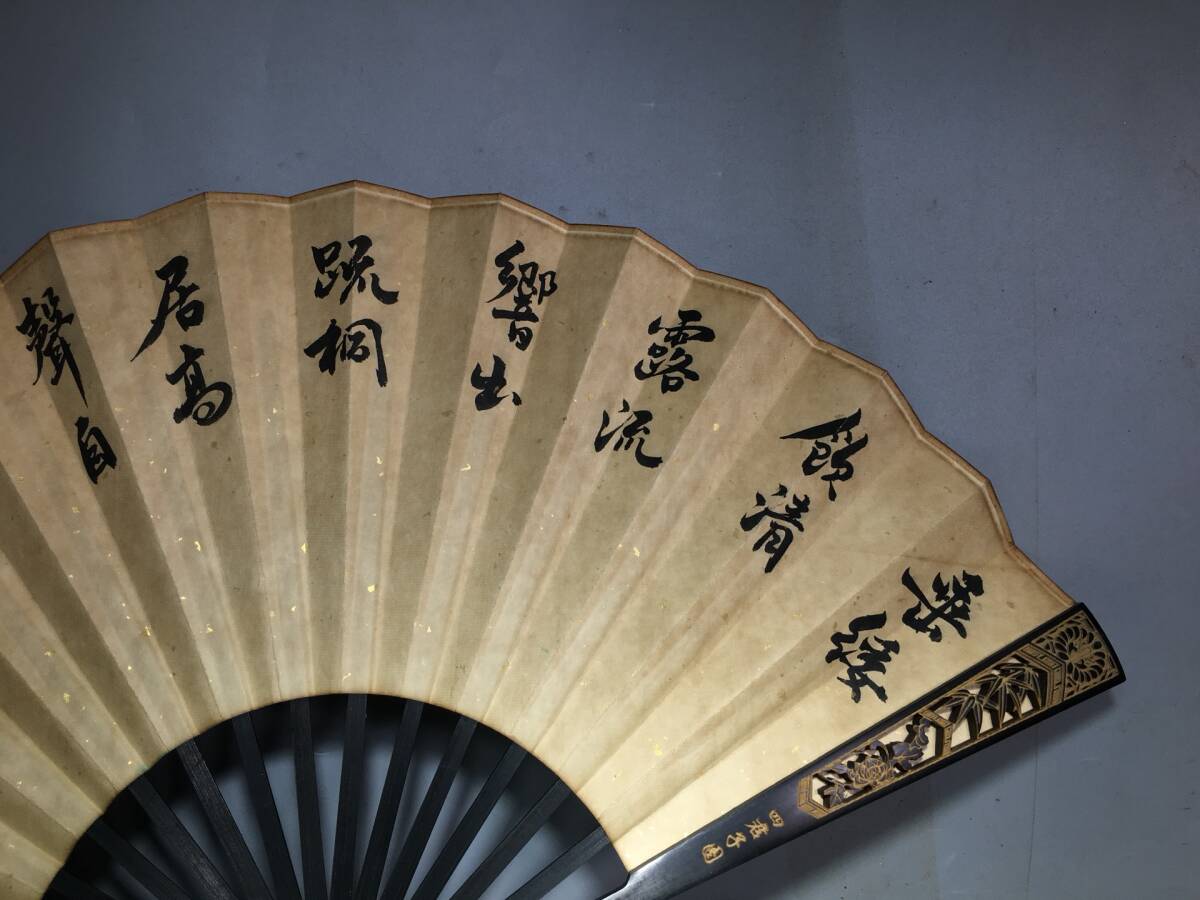 垂緌
飲清
露流
響出
疏桐
居高
聲自
四君子圖